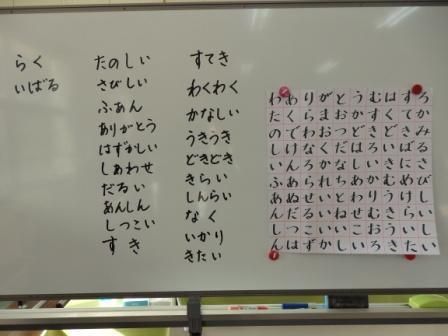 らく
いばる
たのしい
さびしい
ふあん
ありがとう
はずかしい
しあわせ
だるい
あんしん
しつこい
すき
すてき
わくわく
かなしい
うきうき
どきどき
きらい
しんらい
なく
いかり
きたい
わありがとうむはすろ
たくらまおかすくてか
のでわおつどきどきみ
しけなくだはろいばる
いんろかなしいきにさ
ふあられちあかむめび
あぬせいとわりうけし
んだるいねせむきらい
しつこい
んはずかしいろきたい